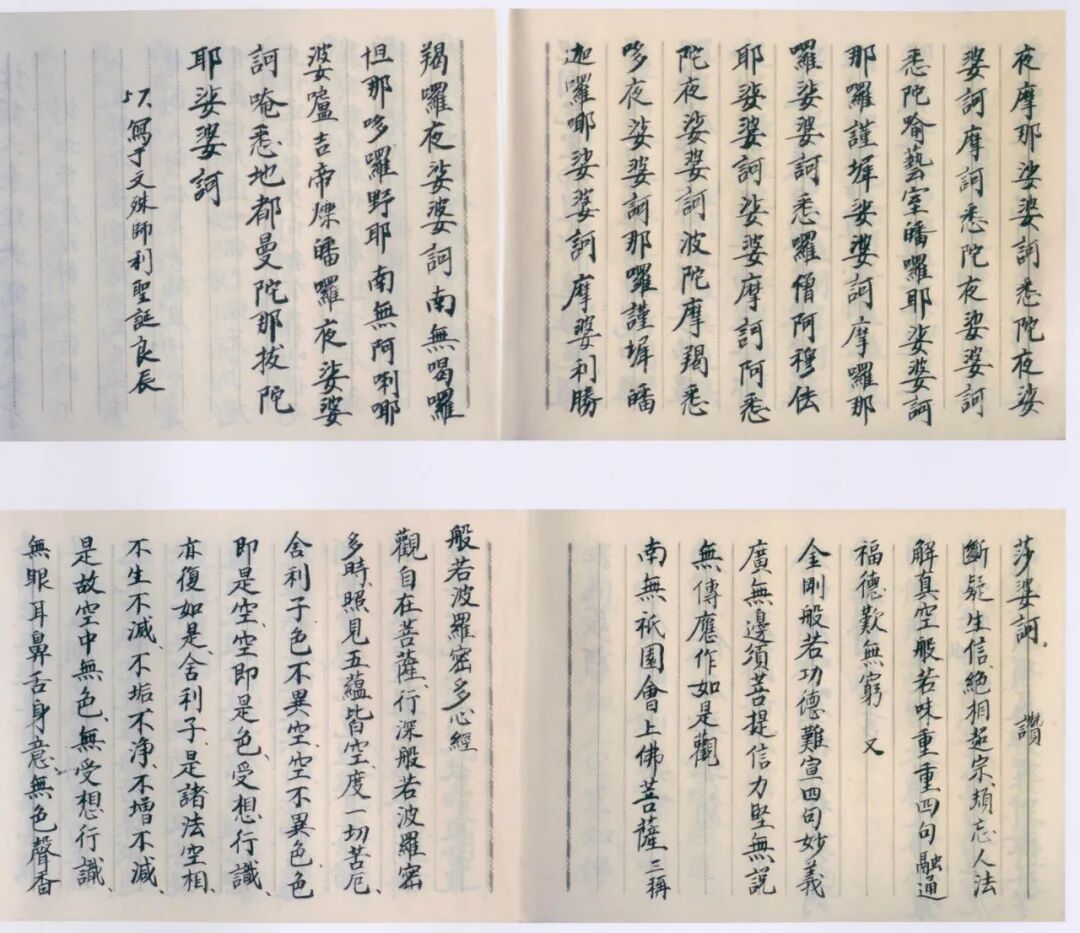 夜摩那娑婆訶悉陀夜娑
婆訶摩訶悉陀夜娑婆訶
悉陀喻藝室皤囉耶娑婆訶
那囉謹墀娑婆訶摩囉那
囉娑婆訶悉囉僧阿穆佉
耶娑婆訶娑婆摩訶阿悉
陀夜娑婆訶波陀摩羯悉
哆夜娑婆訶那囉謹墀皤
迦囉唧娑婆訶摩婆利勝
羯囉夜娑婆訶南無喝囉
怛那哆囉野耶南無阿唎唧
婆嚧吉帝爍皤囉夜娑婆
訶唵悉地都曼陀那拔陀
耶娑婆訶
57.寫于文殊師利聖誕良辰
莎婆訶。 讚
斷疑生信、絕相超宗、頓忘人法
解真空般若味重重四句融通
福德歎無窮 又
金剛般若功德難宣四句妙義
廣無邊須菩提信力堅無說
無傳應作如是觀
南無祇園會上佛菩薩三稱
般若波羅密多心經
觀自在菩薩、行深般若波羅密
多時、照見五蘊皆空、度一切苦厄、
舍利子色不異空、空不異色、色
即是空、空即是色、受想、行識、
亦復如是、舍利子、是諸法空相、
不生不滅、不垢不淨、不增不減、
是故空中無色、無受想、行識、
無眼耳鼻舌身意、無色聲香